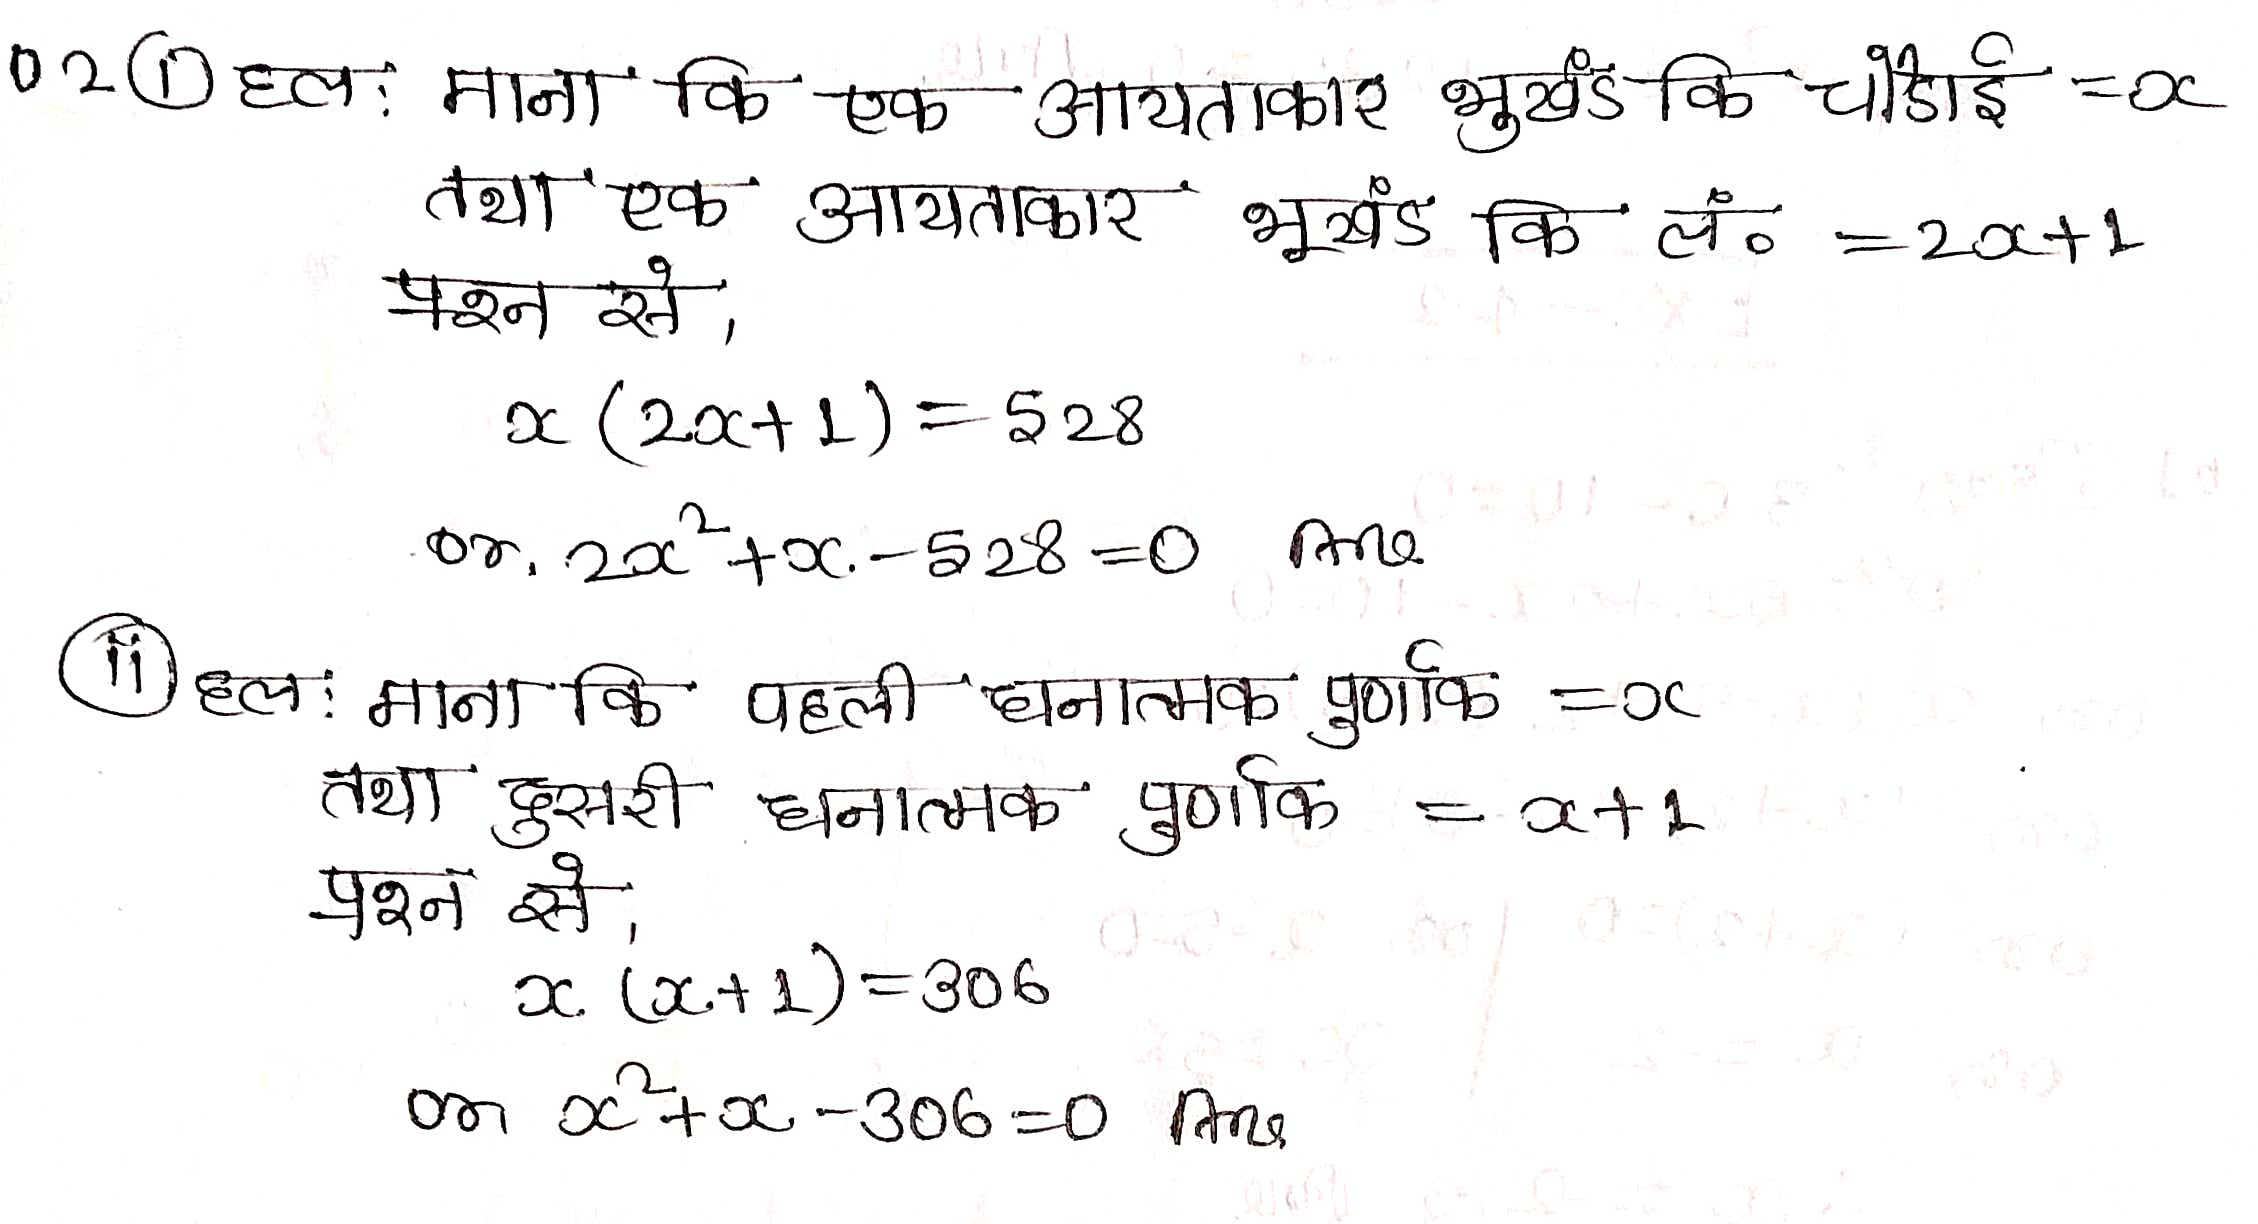 02 (i) हल: माना कि एक आयताकार भुखंड कि चौडाई = x
तथा एक आयताकार भूखंड कि लं० = 2x+1
प्रश्न से,
x (2x+1) = 528
or, 2x²+x-528=0 Ans
(ii) हल: माना कि पहली घनात्मक पुर्णांक = x
तथा दुसरी घनात्मक पुर्णांक = x+1
प्रश्न से,
x (x+1) = 306
or x²+x-306=0 Ans